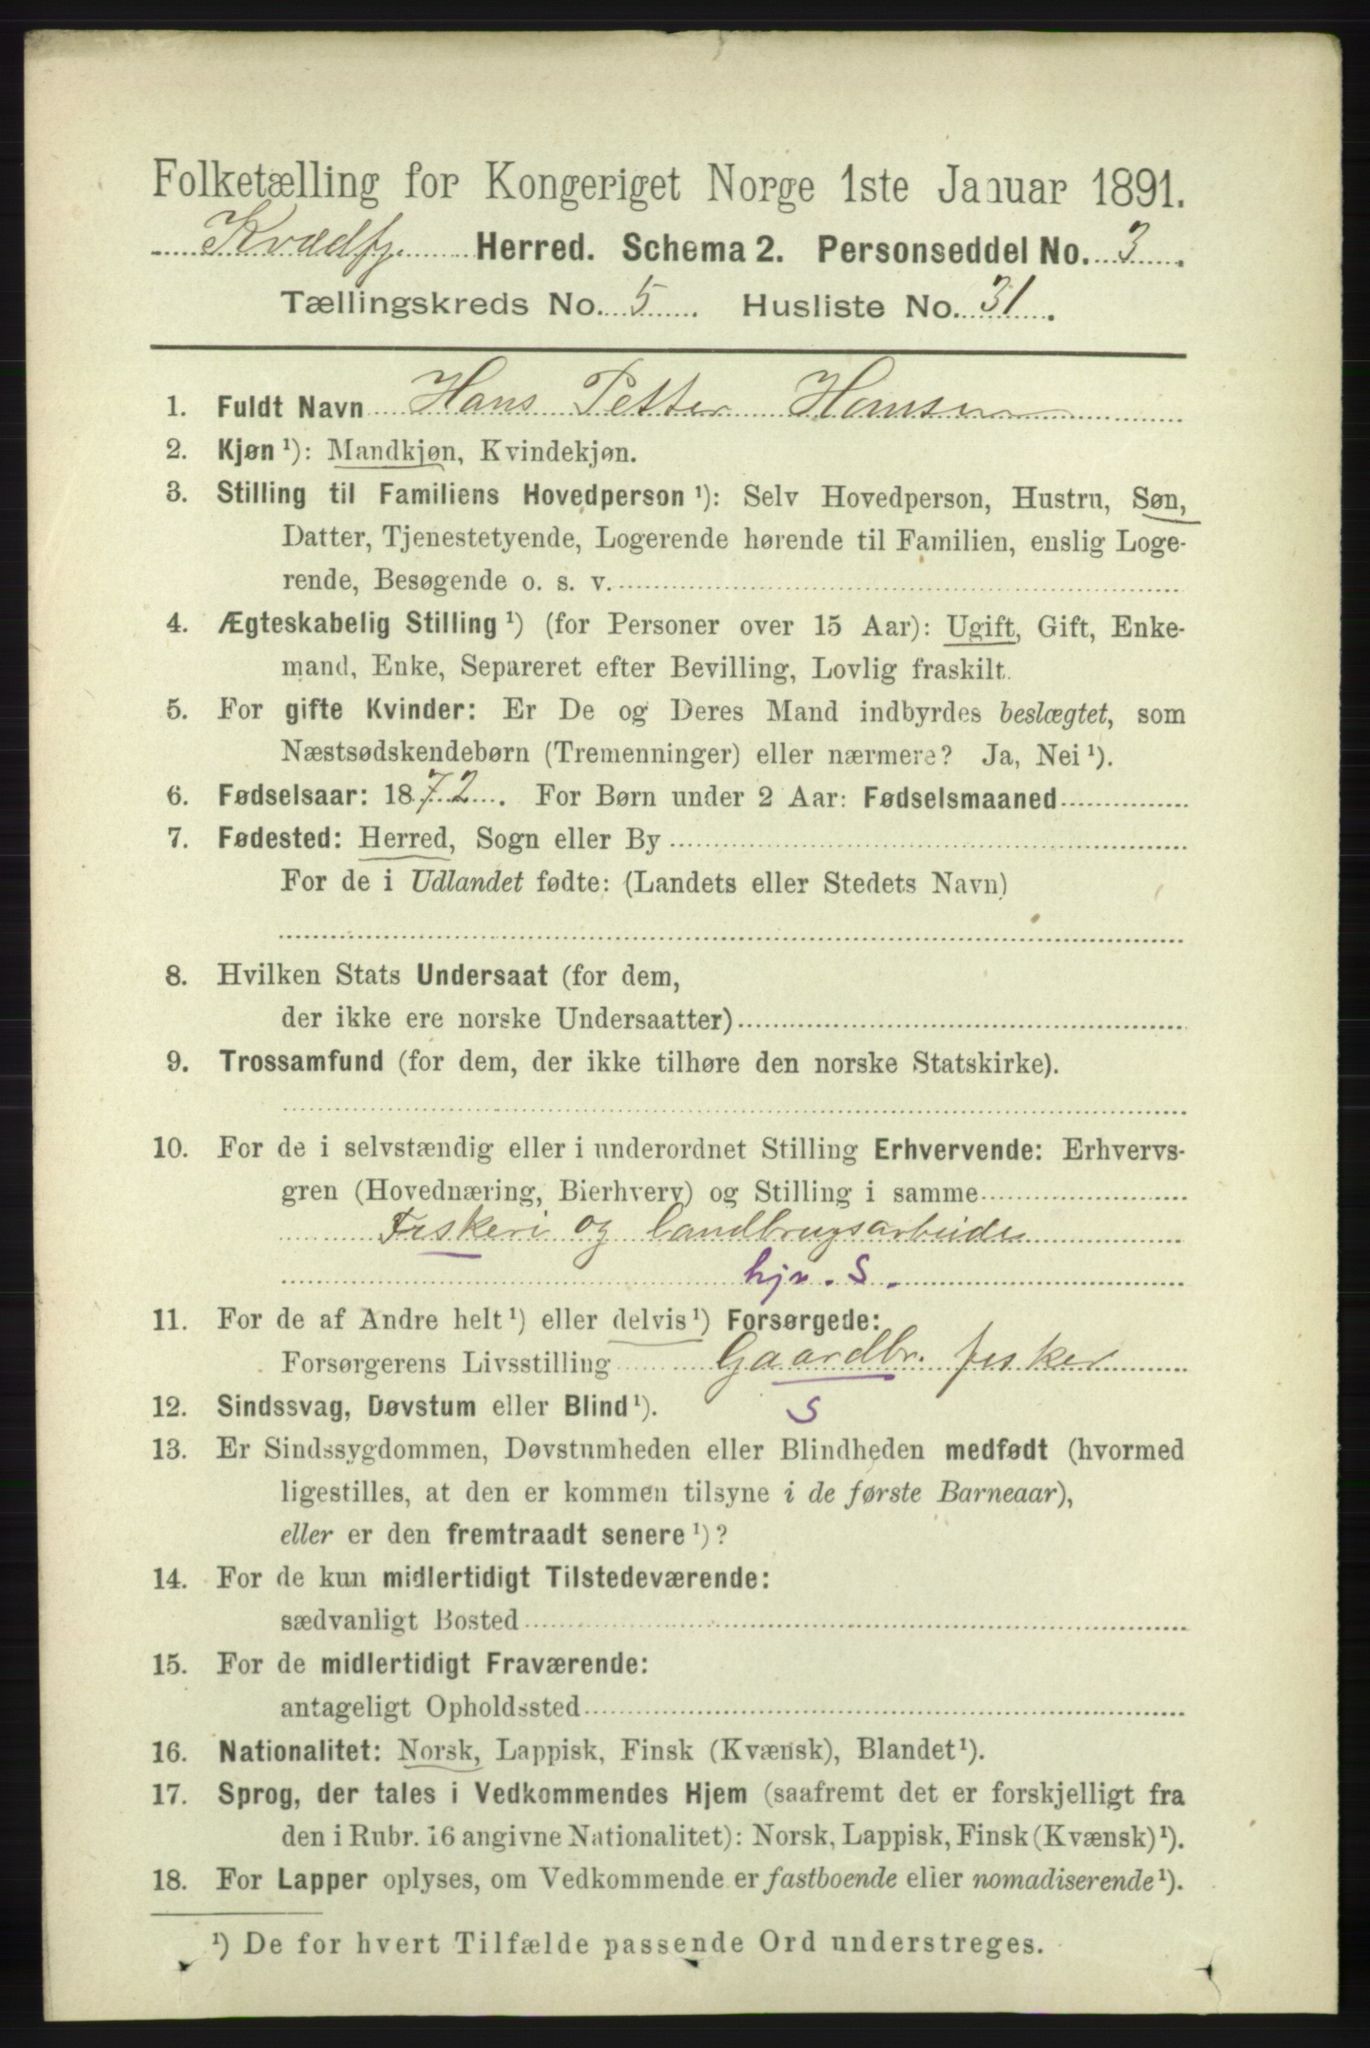 Folketælling for Kongeriget Norge 1ste Januar 1891.
Kvædfj. Herred. Schema 2. Personseddel No. 3.
Tællingskreds No. 5. Husliste No. 31.
1. Fuldt Navn Hans Petter Hansen
2. Kjøn ¹): Mandkjøn, Kvindekjøn.
3. Stilling til Familiens Hovedperson ¹): Selv Hovedperson, Hustru, Søn,
Datter, Tjenestetyende, Logerende hørende til Familien, enslig Loge-
rende, Besøgende o. s. v.
4. Ægteskabelig Stilling ¹) (for Personer over 15 Aar): Ugift, Gift, Enke-
mand, Enke, Separeret efter Bevilling, Lovlig fraskilt.
5. For gifte Kvinder: Er De og Deres Mand indbyrdes beslægtet, som
Næstsødskendebørn (Tremenninger) eller nærmere? Ja, Nei ¹).
6. Fødselsaar: 1872. For Børn under 2 Aar: Fødselsmaaned
7. Fødested: Herred, Sogn eller By
For de i Udlandet fødte: (Landets eller Stedets Navn)
8. Hvilken Stats Undersaat (for dem,
der ikke ere norske Undersaatter)
9. Trossamfund (for dem, der ikke tilhøre den norske Statskirke).
10. For de i selvstændig eller i underordnet Stilling Erhvervende: Erhvervs-
gren (Hovednæring, Bierhverv) og Stilling i samme
Fiskeri og landbrugsarbeide
hjv. S.
11. For de af Andre helt ¹) eller delvis ¹) Forsørgede:
Forsørgerens Livsstilling Gaardbr. fisker
12. Sindssvag, Døvstum eller Blind ¹). S
13. Er Sindssygdommen, Døvstumheden eller Blindheden medfødt (hvormed
ligestilles, at den er kommen tilsyne i de første Barneaar),
eller er den fremtraadt senere ¹)?
14. For de kun midlertidigt Tilstedeværende:
sædvanligt Bosted
15. For de midlertidigt Fraværende:
antageligt Opholdssted
16. Nationalitet: Norsk, Lappisk, Finsk (Kvænsk), Blandet ¹).
17. Sprog, der tales i Vedkommendes Hjem (saafremt det er forskjelligt fra
den i Rubr. 16 angivne Nationalitet): Norsk, Lappisk, Finsk (Kvænsk) ¹).
18. For Lapper oplyses, om Vedkommende er fastboende eller nomadiserende ¹).
¹) De for hvert Tilfælde passende Ord understreges.